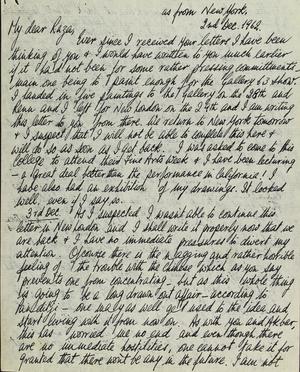 as from New York,
2nd Dec. 1962.
My dear Raza,
Ever since I received your letter I have been
thinking of you & I would have written to you much earlier
if it had not been for some rather pressing commitments
main one being to paint enough for the Gallery 63 show
I handed by five paintings to the Gallery on the 28th and
Renu and I left for New London on the 29th and I am writing
this letter to you from there. We return to New York tomorrow
& I suspect that I will not be able to complete this here &
will do so as soon as I get back. I was asked to come to this
College to attend their Fine Arts week & I have been lecturing
– a great deal better than the performance in California! I
have also had an exhibition of my drawings. It looked
well, even if I say so.
3rd Dec. As I suspected, I wasn't able to continue this
letter in New London and I shall write it properly now that we
are back & I have no immediate pressures to divert my
attention. Of course there is the nagging and rather horrible
feeling of the trouble with the Chinese which as you say
prevents one from concentrating – but as this whole thing
is going to be a long drawn out affair – according to
Panditji – one may as well get used to the idea and
start living with it from now on. As with you and Akbar
this has worried us no end and even though there
are no immediate hostilities, one cannot take it for
granted that there wont be any in the future. I am not